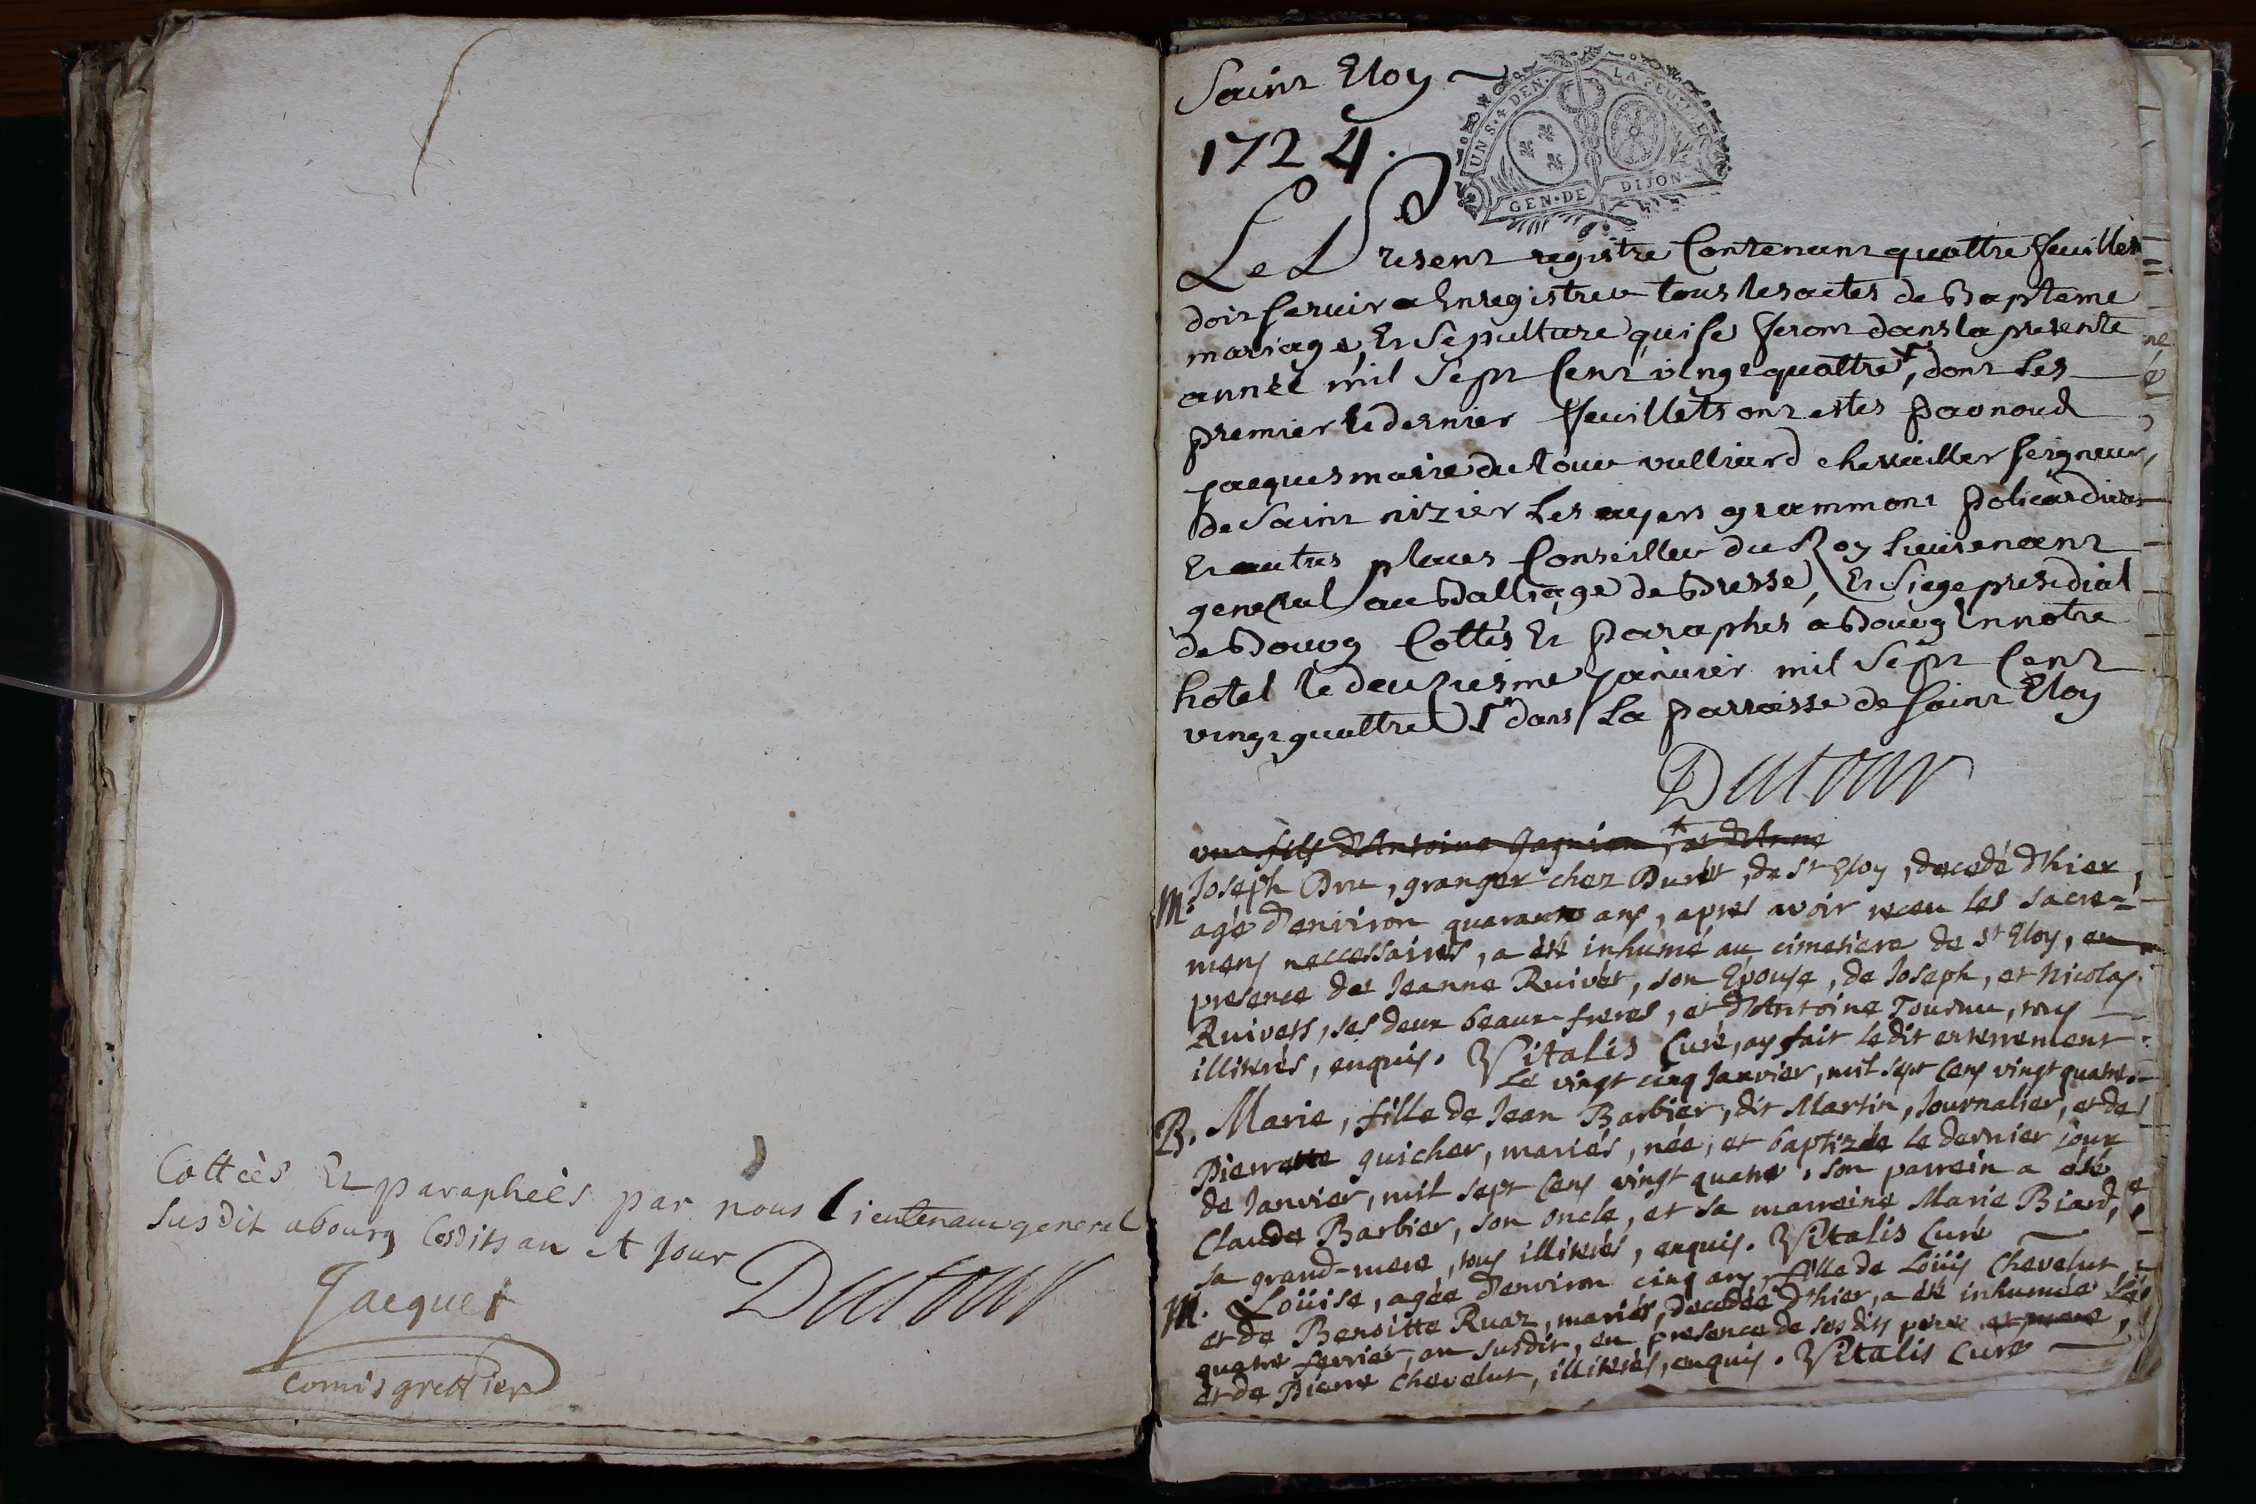 Cottées Et paraphées par nous Lieutenant general
susdit a bourg Cesdits an et Jour
Dutour
Jacquet
Comis greffier
Saint Eloy
UNS. DEN. LA FEUILLE
GEN. DE DIJON
1724.
Le Present registre Contenant quattre feuillets
doit servir a Enregistrer tous les actes de Bapteme
mariage, Et Sepulture qui se feront dans la presente
année mil Sept Cent vingt quattre, dont Les
premier & dernier feuillets ont estes Par nous
jacques marie dutour vulliard chevallier seigneur
de Saint nizier Les ayers grammont
Et autres places Conseiller du Roy Lieutenant
general au Balliage de Bresse, Et Siege presidial
de Bourg Cottés Et Paraphés a Bourg En notre
hotel le deuziesme janvier mil Sept Cent
vingt quattre dans La Parroisse de Saint Eloy
Dutour
un fils d'Antoine Jagnion, et d'Anne
M. Joseph Dru, granger chez Duret, de St Eloy, decedé d'hier,
agé d'environ quarante ans, apres avoir receu les sacre=
mens neccessaires, a été inhumé au cimetiere de St Eloy, en
presence de Jeanne Ruivet, son Epouse, de Joseph, et Nicolas
Ruivets, ses deux beaux-freres, et d'Antoine Tournu, tous
illiterés, enquis. Vitalis Curé, ay fait le dit enterrement
Le vingt cinq Janvier, mil sept Cens vingt quatre.
B. Marie, fille de Jean Barbier, dit Martin, Journalier, et de
Pierrette guicher, mariés, née, et baptizée le dernier jour
de Janvier, mil sept Cens vingt quatre. son parrein a été
Claude Barbier, son oncle, et sa marreine Marie Biard,
sa grand-mere, tous illiterés, enquis. Vitalis Curé
M. Loüise, agée d'environ cinq ans, fille de Loüis Chevelut
et de Benoitte Ruaz, mariés, decedée d'hier, a été inhumée le
quatre fevrier, an susdit, en presence de ses dits pere et mere,
et de Pierre Chevelut, illiterés, enquis. Vitalis Curé